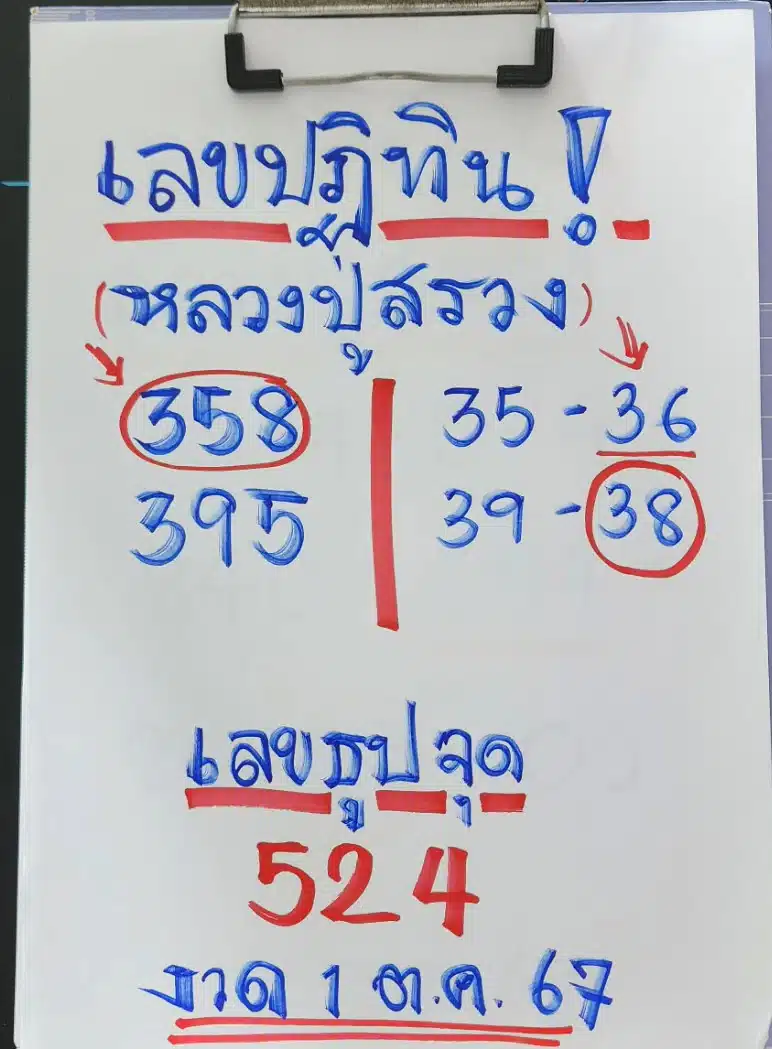 เลขปฏิทิน!
(หลวงปู่สรวง)
358 35 - 36
395 39 - 38
เลขธูปจุด
524
งวด 1 ต.ค. 67